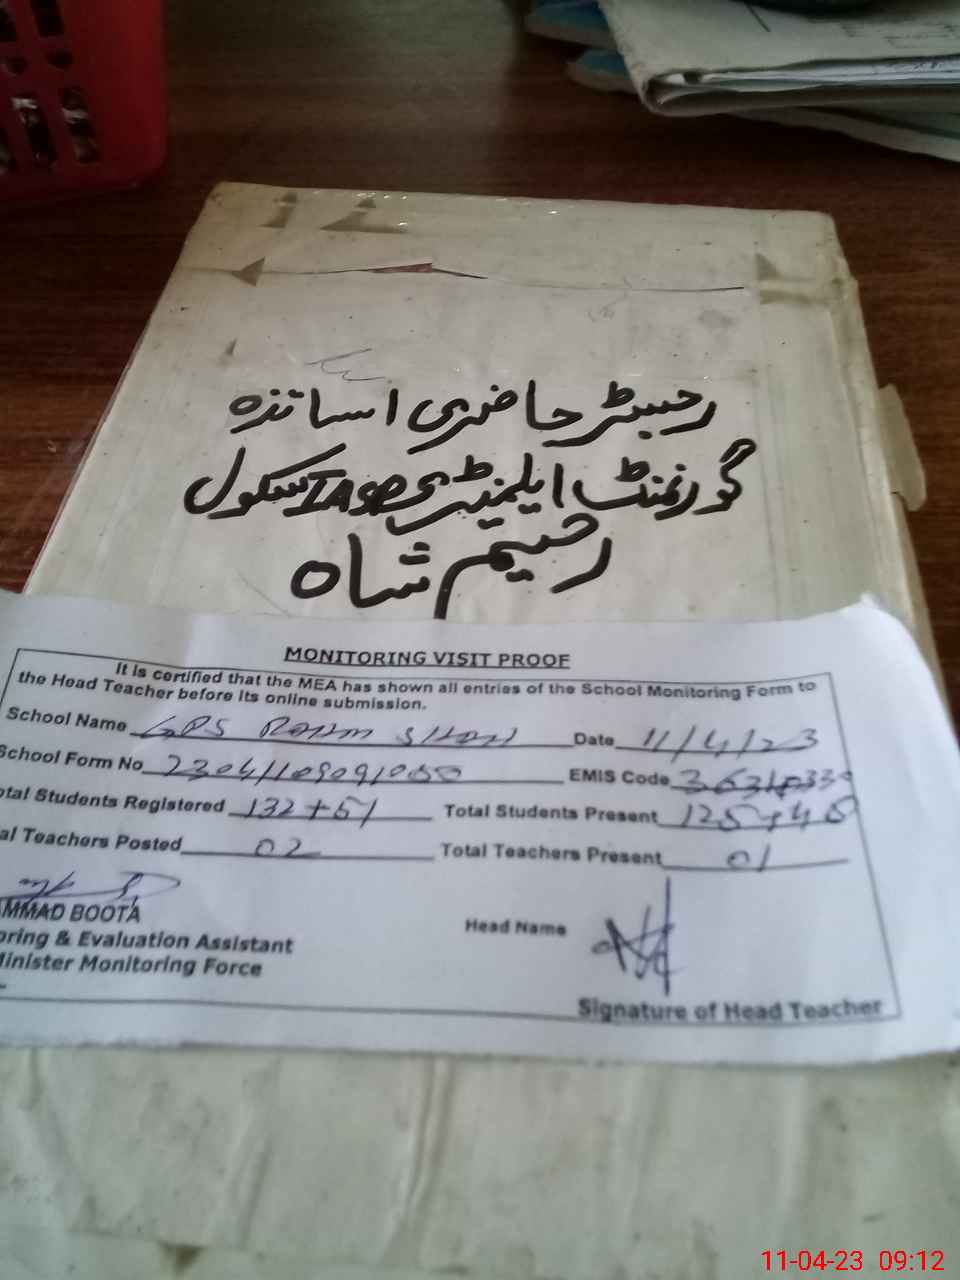 رجسٹر حاضری اساتذہ
گورنمنٹ ایلمنٹری IASP سکول
رحیم شاہ
MONITORING VISIT PROOF
It is certified that the MEA has shown all entries of the School Monitoring Form to
the Head Teacher before its online submission.
School Name GPS RAHIM SHAH Date 11/4/23
School Form No 23041109091050 EMIS Code
otal Students Registered 132+51 Total Students Present 125+48
al Teachers Posted 02 Total Teachers Present 01
MMAD BOOTA
oring & Evaluation Assistant Head Name
Minister Monitoring Force
Signature of Head Teacher
11-04-23 09:12